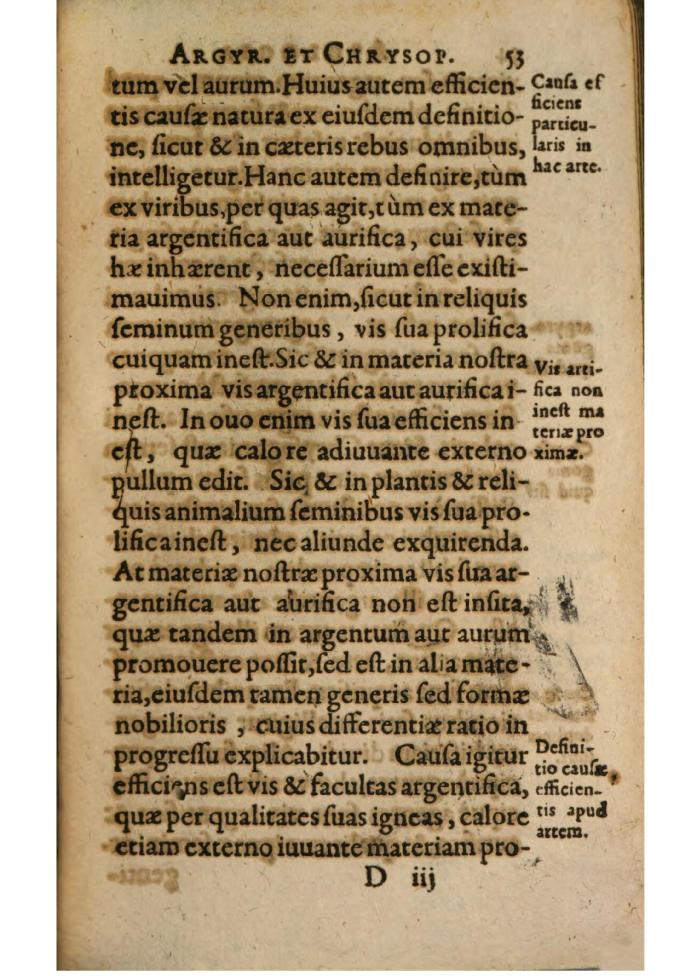 ARGYR. ET CHRYSOP. 53
tum vel aurum. Huius autem efficien-
tis causæ natura ex eiusdem definitio-
ne, sicut & in cæteris rebus omnibus,
intelligetur. Hanc autem definire, tùm
ex viribus, per quas agit, tùm ex mate-
ria argentifica aut aurifica, cui vires
hæ inhærent, necessarium esse existi-
mauimus. Non enim, sicut in reliquis
seminum generibus, vis sua prolifica
cuiquam inest. Sic & in materia nostra
proxima vis argentifica aut aurifica i-
nest. In ouo enim vis sua efficiens in
est, quæ calore adiuuante externo
pullum edit. Sic & in plantis & reli-
quis animalium seminibus vis sua pro-
lifica inest, nec aliunde exquirenda.
At materiæ nostræ proxima vis sua ar-
gentifica aut aurifica non est insita,
quæ tandem in argentum aut aurum
promouere possit, sed est in alia mate-
ria, eiusdem tamen generis sed formæ
nobilioris, cuius differentiæ ratio in
progressu explicabitur. Causa igitur
efficiens est vis & facultas argentifica,
quæ per qualitates suas igneas, calore
etiam externo iuuante materiam pro-
D iij
Causa ef
ficiens
particu-
laris in
hac arte.
Vis arti-
fica non
inest ma
teriæ pro
ximæ.
Defini-
tio causæ
efficien-
tis apud
artem.